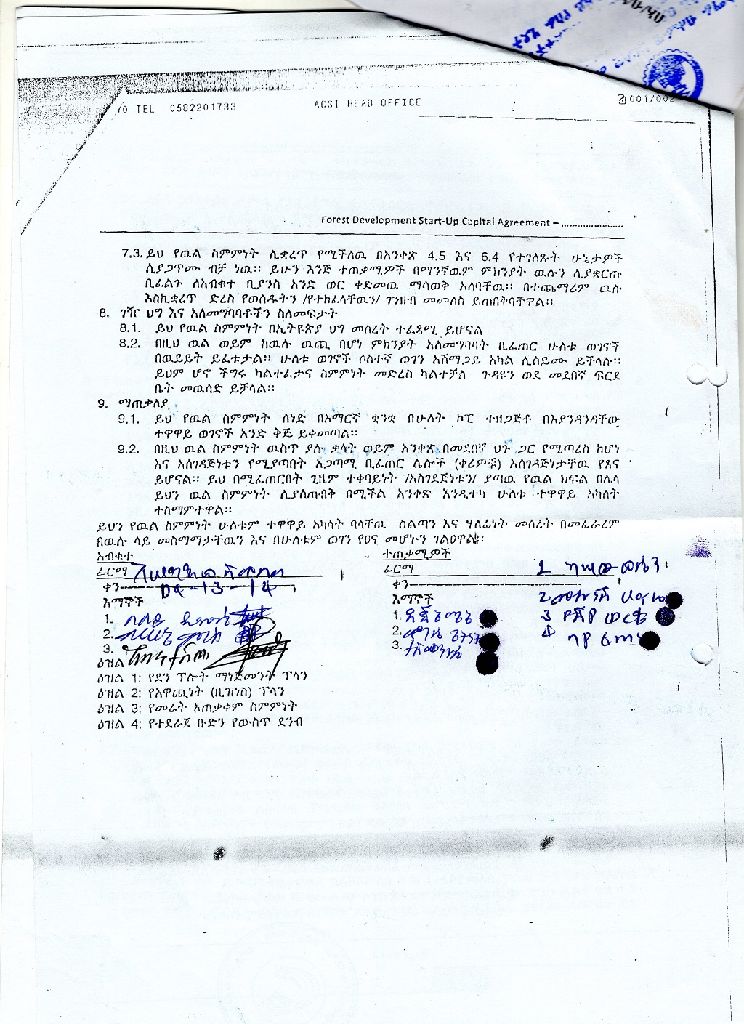 TEL 0582201733 ACSI HEAD OFFICE 001/002
Forest Development Start-Up Capital Agreement – ....................
7.3. ይህ የዉል ስምምነት ሊቋረጥ የሚችለዉ በአንቀጽ 4.5 እና 6.4 የተገለጹት ሁኔታዎች
ሲያጋጥሙ ብቻ ነዉ። ይሁን እንጅ ተጠቃሚዎች በማንኛዉም ምክንያት ዉሉን ሲያቋርጡ
ቢፈልጉ ለአብቁተ ቢያንስ አንድ ወር ቀደመዉ ማሳወቅ አለባቸዉ። በተጨማሪም ዉሉ
እስኪቋረጥ ድረስ የወሰዱትን /የተከፈላቸዉን/ ገንዘብ መመለስ ይጠበቅባቸዋል።
8. ገዥ ህግ እና አለመግባባቶችን ስለመፍታት
8.1. ይህ የዉል ስምምነት በኢትዮጵያ ህግ መሰረት ተፈጻሚ ይሆናል
8.2. በዚህ ዉል ወይም ከዉሉ ዉጪ በሆነ ምክንያት አለመግባባት ቢፈጠር ሁለቱ ወገኖች
በዉይይት ይፈቱታል። ሁለቱ ወገኖች ሶስተኛ ወገን አሸማጋይ አካል ሊሰይሙ ይችላሉ።
ይህም ሆኖ ችግሩ ካልተፈታና ስምምነት መድረስ ካልተቻለ ጉዳዩን ወደ መደበኛ ፍርድ
ቤት መዉሰድ ይቻላል።
9. ማጠቃለያ
9.1. ይህ የዉል ስምምነት ሰነድ በአማርኛ ቋንቋ በሁለት ኮፒ ተዘጋጅቶ በእያንዳንዳቸው
ተዋዋይ ወገኖች አንድ ቅጅ ይቀመጣል።
9.2. በዚህ ዉል ስምምነት ዉስጥ ያሉ ቃላት ወይም አንቀጽ በመደበኛ ህግ ጋር የሚጣረስ ከሆነ
እና አስገዳጅነቱን የሚያጣበት አጋጣሚ ቢፈጠር ሌሎች (ቀሪዎቹ) አስገዳጅነታቸዉ የጸና
ይሆናል። ይህ በሚፈጠርበት ጊዜም ተቀባይነት /አስገዳጅነቱን/ ያጣዉ የዉል ክፍል በሌላ
ይህን ዉል ስምምነት ሊያስጠብቅ በሚችል አንቀጽ እንዲተካ ሁለቱ ተዋዋይ አካላት
ተስማምተዋል።
ይህን የዉል ስምምነት ሁለቱም ተዋዋይ አካላት ባላቸዉ ስልጣን እና ሃላፊነት መሰረት በመፈራረም
በዉሉ ላይ መስማማታቸዉን እና በሁለቱም ወገን የጸና መሆኑን ገልፀዋል፡
አብቁተ ተጠቃሚዎች
ፊርማ ፊርማ 1
ቀን 04-13-14 ቀን
እማኞች እማኞች 2
1. 1. 3
2. 2. 4
3. 3.
ዕዝል
ዕዝል 1: የደን ፕሎት ማነጅመንት ፕላን
ዕዝል 2: የአዋጪነት (ቢዝነስ) ፕላን
ዕዝል 3: የመሬት አጠቃቀም ስምምነት
ዕዝል 4: የተደራጀ ቡድን የውስጥ ደንብ